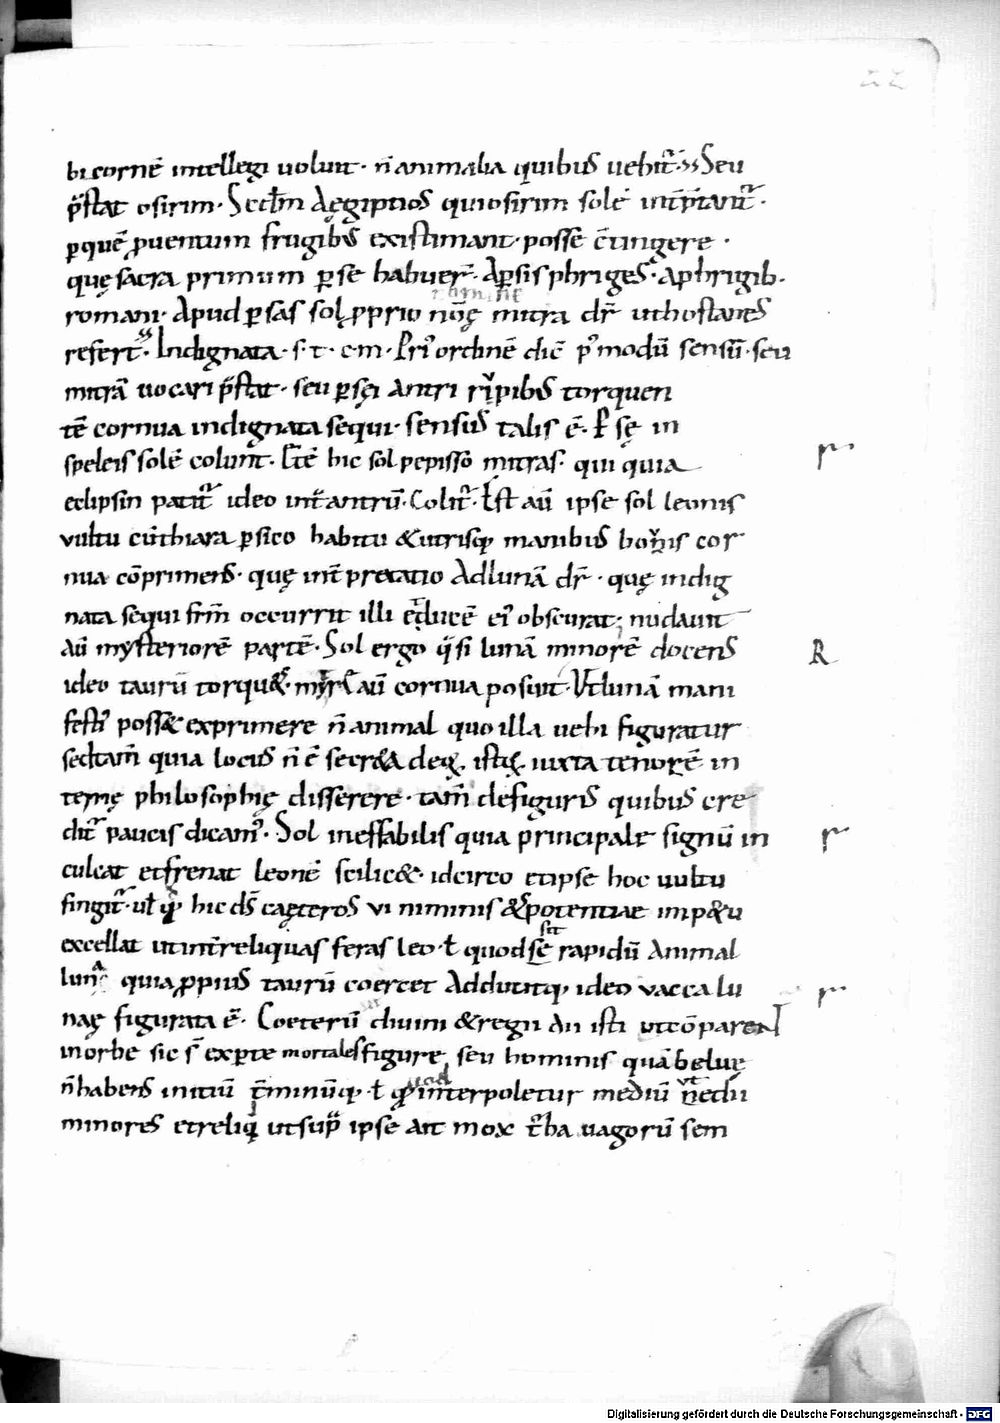 22
bicornē intellegi uolunt· n̄ animalia quibus uehit᷑· Seu
p̄stat osirim· Scd̄m Aęgiptios qui osirim solē int̄p̄tant᷑·
ꝑquē ꝓuentum frugibus existimant· posse c̄tingere·
quę sacra primum ꝑse habuer̄· Aꝑsis phriges· aphrigib·
romani· Apud ꝑsas sol ꝓprio nōe mitra dr̄ ut hostanes
refert· Indignata· s· t· c· m· Pri᷑ ordinē dic̄ p᷒ modū sensū· seu
mitrā uocari p̄stat· seu ꝑsei antri rupibus torquen
tē cornua indignata sequi· sensus talis ē· Psę in
speleis solē colunt· Et ē hic sol mitras· qui quia
eclipsin patit᷑ ideo int̄ antrū· Colit᷑· Est aū ipse sol leonis
uultu cū thiara ꝑsico habitu & utrisq; manibus bouis cor
nua cōprimens· quę int̄pretatio Ad lunā dr̄· quę indig
nata sequi frm̄ occurrit illi & lucē ei᷒ obscurat; nudauit
aū mysteriorē partē· Sol ergo q̄si lunā minorē docens
ideo taurū torqu& aū cornua posuit· Ut lunā mani
festi᷒ poss& exprimere n̄ animal quo illa uehi figuratur
sed tam̄ quia locus n̄ ē secr&a deq; istiq; iuxta tenorē in
ternę philosophię disserere· tam̄ de figuris quibus cre
dit᷑ paucis dicam᷒· Sol ineffabilis quia principale signū in
culcat et frenat leonē scilic&· idcirco et ipse hoc uultu
fingit᷑· ut hic ds̄ cęteros ui numinis & potentiae imp&u
excellat ut int̄ reliquas feras leo· ł quod sit rapidū animal
luna quia ꝓpius taurū coercet Adducitq; ideo vacca lu
naę figurata ē· Coeterū diuini & regii an isti ut cōparen
in orbe sic s̄ exꝑte mortales figure, seu hominis quā beluę
n̄ habens initiū t̄minūq; ł quod interpoletur mediū ut nedū
minores et reliq̄ ut sup̄ ipse ait mox t᷑ba uagorū sem
R
Digitalisierung gefördert durch die Deutsche Forschungsgemeinschaft - DFG